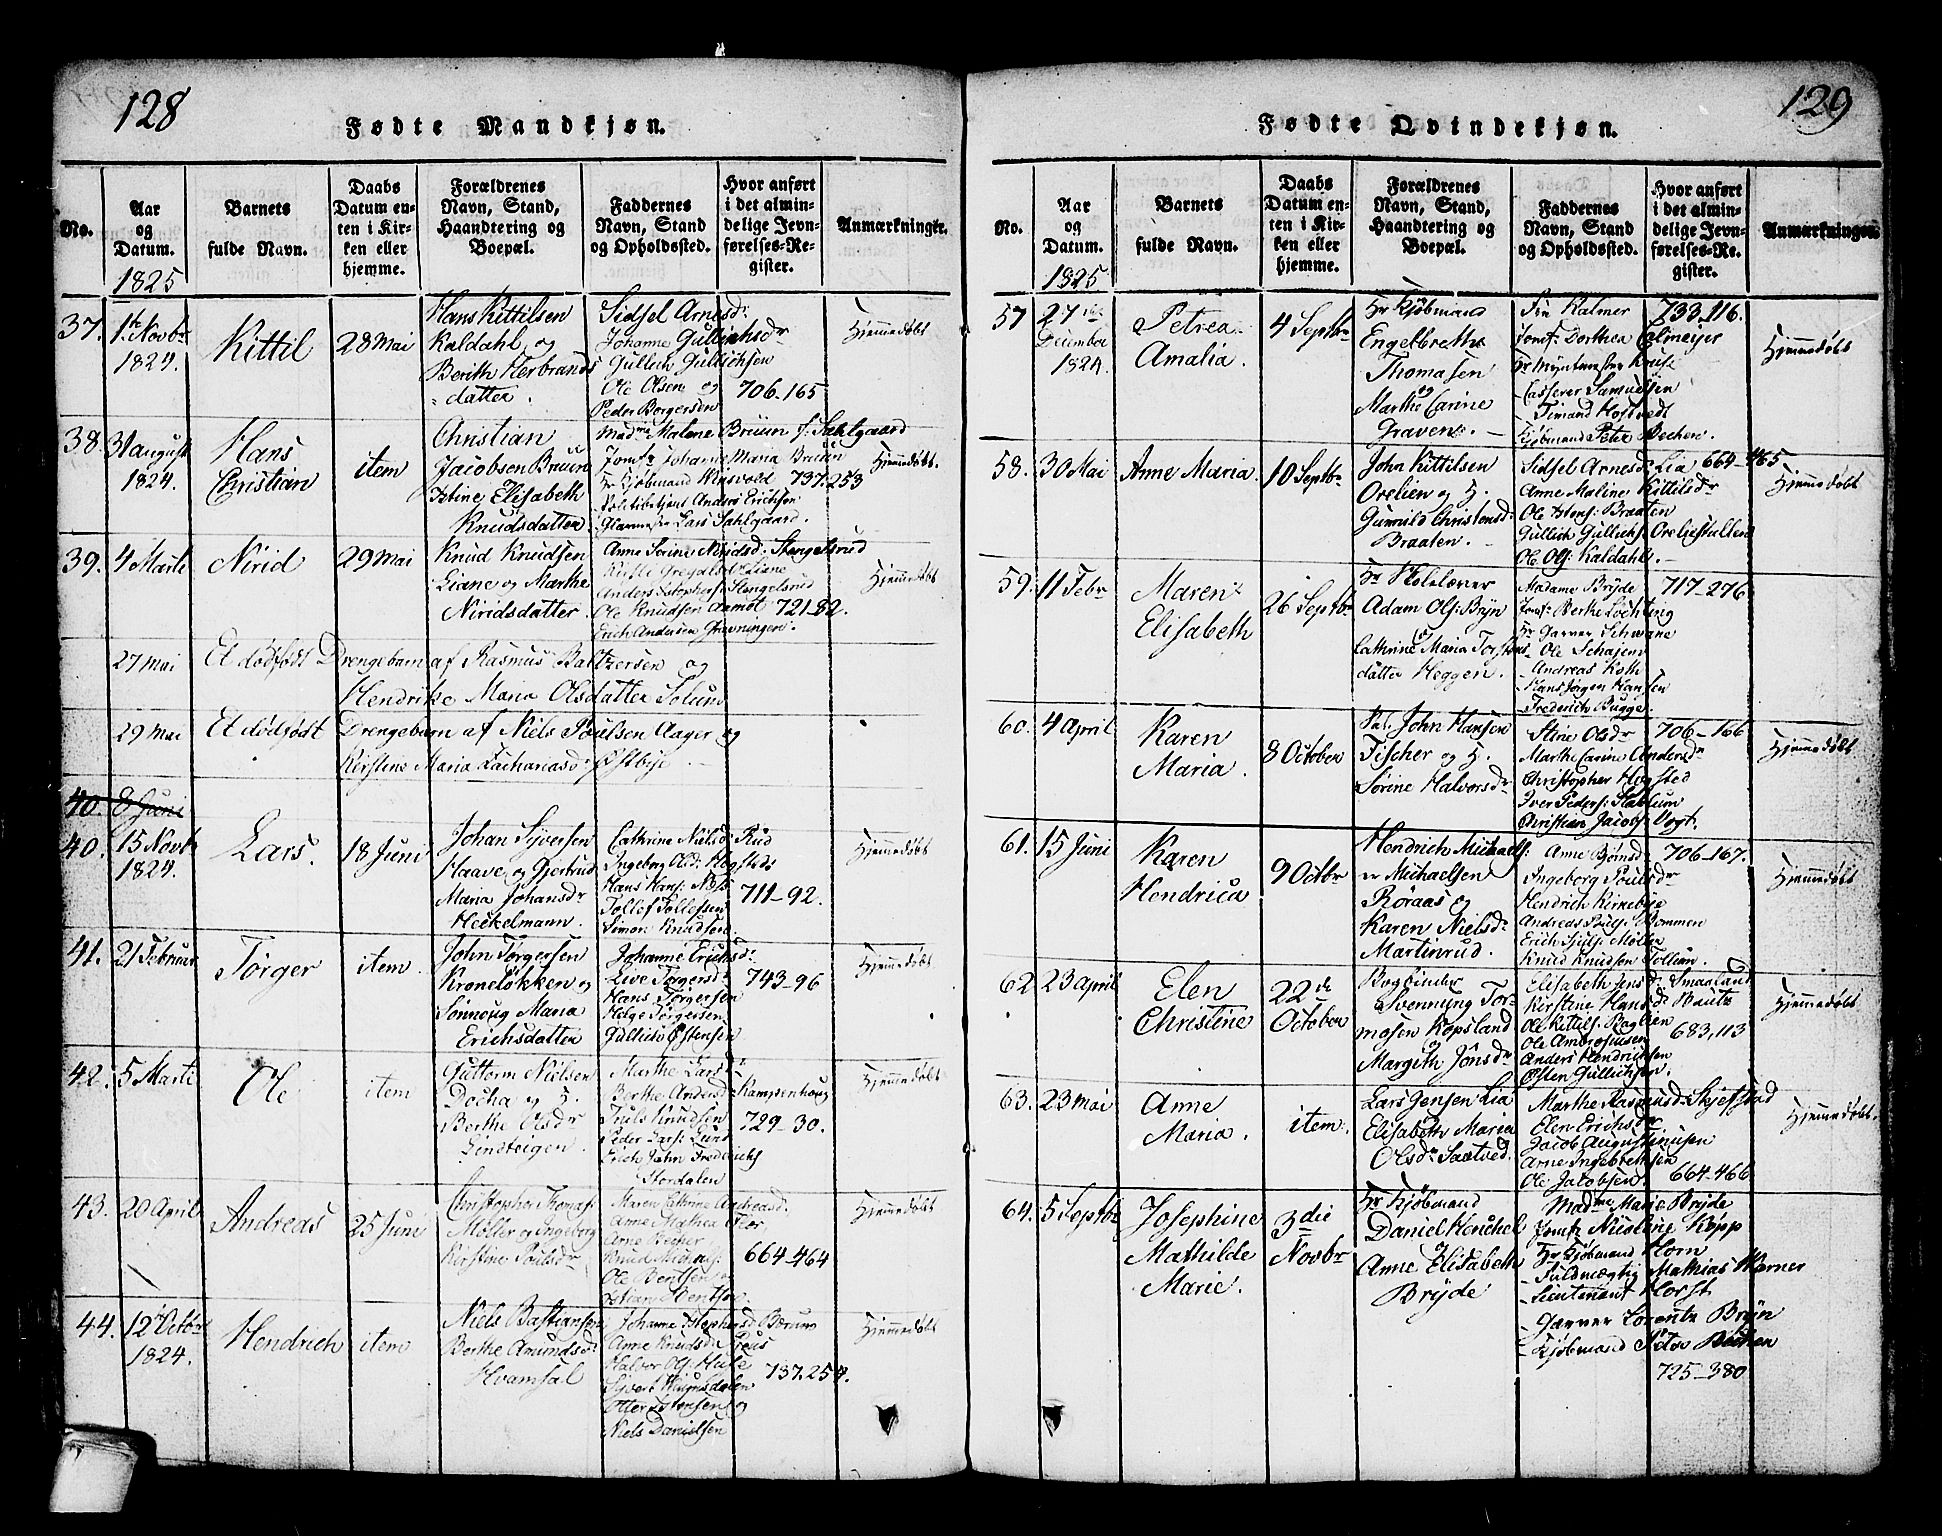 128
Fødte Mandkjøn.
No.
Aar og Datum.
Barnets fulde Navn.
Daabs Datum enten i Kirken eller hjemme.
Forældrenes Navn, Stand, Haandtering og Boepæl.
Faddernes Navn, Stand og Opholdssted.
Hvor anført i det almindelige Jevnførelses-Register.
Anmærkninger.
1825
37. 1te Novbr 1824.
Kittil
28 Mai
Hans Kittilsen
Kaldahl og
Berith Herbrands
datter.
Sidsel Arnesdr
Johanne Gullichsdr
Gullich Gullichsen
Ole Olsen og
Peder Borgersen
706-165
Hjemmedøbt
38. 31 august 1824.
Hans
Christian
item
Christian
Jacobsen Bruun
Stine Elisabeth
Knudsdatter
Madme Malene Bruun f: Sahlgaard
Jomfr Johanne Maria Bruun
Hr Kjøbmand Winsvold 737.253
Politibetjent Anders Erichsen
Lars Sahlgaard.
Hjemmedøbt
39. 4 Marti
Nirid
29 Mai
Knud Knudsen
Liane og Marthe
Niridsdatter.
Anne Sørine Niridsd. Stengelsrud
Liane
Anders Stophers: Stengelsrud
Ole Knudsen Aamot 721-82.
Erich Andersen Gravningen.
Hjemmedøbt
27 Mai
Et dødfødt Drengebarn af Rasmus Baltzersen og
Hendrike Maria Olsdatter Solum
29 Mai
Et dødfødt Drengebarn af Niels Poulsen Aager og
Kirstine Maria Zachariasdr Østbye
40. 8 Juni
40. 15 Novbr 1824.
Lars.
18 Juni
Johan Syversen
Haave og Gjertrud
Maria Johansdr
Heckelmann.
Cathrine Nielsd Rud
Ingeborg Olsdr Kogstads
Hans Hans: Næs
Tollef Tollefsen
Simon Knudsen.
711-92.
Hjemmedøbt
41. 21 Februar
Törger
item.
John Törgersen
Kroneløkken og
Sønnoug Maria
Erichsdatter
Johanne Erichsdr
Live Törgersdr
Hans Törgersen
Helge Törgersen
Gullich Østensen
743-96
Hjemmedøbt
42. 5 Marti
Ole
item
Guttorm Nielsen
Docha og H.
Berthe Olsdr
Lindteigen.
Marthe Larsdr
Berthe Andersd Kampenhoug
Truls Knudsen
Peder Lars: Lund
Erich John Frederichs
Stordalen
729-30.
Hjemmedøbt
43. 20 April
Andreas
25 Juni
Christopher Thomas:
Møller og Ingeborg
Kirstine Poulsdr
Maren Cathrine Andreasd.
Anne Mathea Flor.
Arne Becher
Ole Bentsen og
664-464
Hjemmedøbt
44. 12 Octbr 1824.
Hendrich
item
Niels Bastiansen
Berthe Amundsd
Hvamsal
Johanne Stophersd Bærum
Anne Knudsdr
Halvor Ols: Hule
Otter Torstensen og
Niels Danielsen
737.254.
Hjemmedøbt
129
Fødte Qvindekjøn.
No.
Aar og Datum.
Barnets fulde Navn.
Daabs Datum enten i Kirken eller hjemme.
Forældrenes Navn, Stand, Haandtering og Boepæl.
Faddernes Navn, Stand og Opholdssted.
Hvor anført i det almindelige Jevnførelses-Register.
Anmærkninger.
1825
57 27de December 1824.
Petrea
Amalia.
4 Septbr
Hr Kjøbmand
Engelbreth
Thomasen
og
Marthe Carine
Gravene.
Fru Kalmer
Jomfr Dorthea Ellmeijer
Hr Myntmester Kruse
Casserer Samuelsen
Timand Hostvedt
Kjøbmand Peter Bechen.
733-116.
Hjemmedøbt
58. 30 Mai
Anne Maria.
10 Septbr
John Kittilsen
Orelien og H.
Gunnild Christensd:
Braaten.
Sidsel Arnesdr Lia 664-465
Anne Maline Kittilsdr
Ole Hans: Braaten
Gullich Gullichs: Oreliestullen
Ole Ols: Kaldahl.
Hjemmedøbt
59. 11 Febr
Maren
Elisabeth
26 Septbr
Hr Skolelærer
Adam Ols: Bryn
og
Cathrine Maria Torstens
datter Heggen.
Madame Bryde 717-276
Jomfr Berthe Lochting
Hr Garver Schwane
Ole Schajen
Andreas Koth
Hans Jørgen Hansen
Frederich Bugge.
60. 4 April
Karen
Maria.
8 October
John Hansen
Fischer og H.
Sørine Halvorsdr
Stine Olsdr 706-166
Marthe Carine Andersdr
Christopher Høgsted
Iver Peders: Stablum
Christian Jacobs: Vogt.
Hjemmedøbt
61. 15 Juni
Karen
Hendrica
9 Octbr
Hendrich Michaels:
er Michaelsen
Røraas og
Karen Nielsdr
Martinrud.
Anne Bjørnsdr 706-167.
Ingeborg Poulsdr
Hendrich Kirkebye
Andreas Pouls: Bommen
Erich Sjuls: Møller
Knud Knudsen Follum.
Hjemmedøbt
62. 23 april
Elen
Christine
22de
October
Bogbinder
Svenning Tor-
mosen Kopsland
og
Margith Jönsdr
Elisabeth Jensdr Smaaland
Kirstine Hansdr Bautz
Ole Kittils: Baglien
Ole Ambrosiusen 683,113
Anders Hendrichsen
Østen Gullichsen.
Hjemmedøbt
63. 23 Mai
Anne
Maria.
item.
Lars Jensen Lia
Elisabeth Maria
Olsdr Saatved.
Marthe Rasmusd: Skjefstad
Elen Erichsdr
Jacob Augustinusen
Arne Ingebrethsen
Ole Jacobsen. 664-466
Hjemmedøbt.
64. 5 Septbr
Josephine
Mathilde
Marie.
3die
Novbr
Hr Kjøbmand
Daniel Henchel
og
Anne Elisabeth
Bryde
Madme Marie Bryde
Jomfr Nicoline Kopp
Hr Kjøbmand Horn
Fuldmægtig Mathias Warner
Lieutenant Horst
Garver Lorentz Bryn
Kjøbmand Peter Bechen
725-380